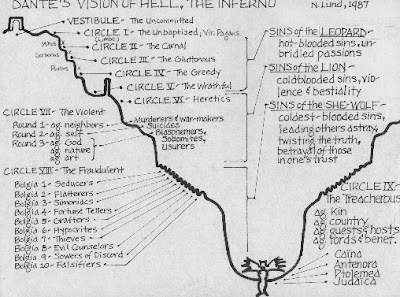 DANTE'S VISION OF HELL, THE INFERNO
N. Lund, 1987
VESTIBULE - The Uncommitted
CIRCLE I - The Unbaptized, Vir. Pagans
(Limbo)
CIRCLE II - The Carnal
Minos
CIRCLE III - The Gluttonous
Cerberus
CIRCLE IV - The Greedy
Plutus
CIRCLE V - The Wrathful
CIRCLE VI - Heretics
SINS of the LEOPARD -
hot-blooded sins, un-
bridled passions
SINS of the LION -
coldblooded sins, vio-
lence & bestiality
SINS of the SHE-WOLF -
coldest-blooded sins,
leading others astray,
twisting the truth,
betrayal of those
in one's trust
CIRCLE VII - The Violent
Round 1 - ag. neighbors
Round 2 - ag. self
Round 3 - ag. God
ag. nature
ag. art
Murderers & war-makers
Suicides
Blasphemers,
Sodomites,
Usurers
CIRCLE VIII - The Fraudulent
Bolgia 1 - Seducers
Bolgia 2 - Flatterers
Bolgia 3 - Simoniacs
Bolgia 4 - Fortune Tellers
Bolgia 5 - Grafters
Bolgia 6 - Hypocrites
Bolgia 7 - Thieves
Bolgia 8 - Evil Counselors
Bolgia 9 - Sowers of Discord
Bolgia 10 - Falsifiers
CIRCLE IX -
The Treacherous
ag. kin
ag. country
ag. guests & hosts
ag. lords & benef.
Caina
Antenora
Ptolemea
Judaica